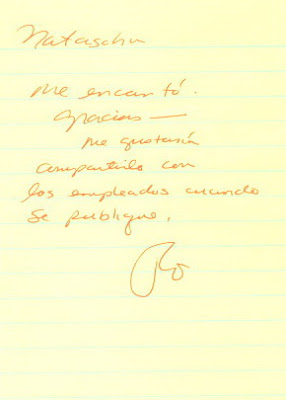 Natascha
Me encantó.
Gracias —
Me gustaría
compartirlo con
los empleados cuando
se publique.